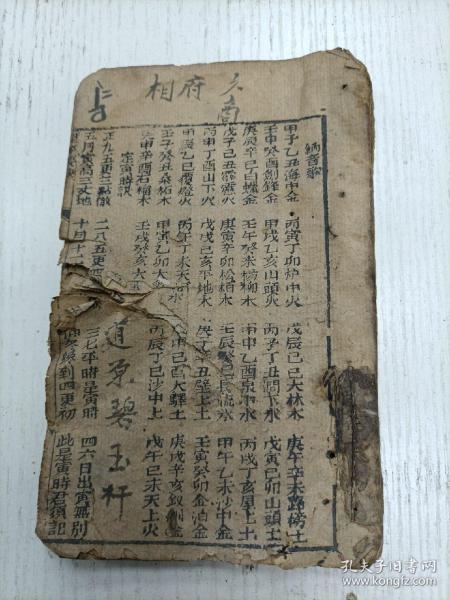 相府
納音歌
甲子乙丑海中金 丙寅丁卯炉中火 戊辰己巳大林木 庚午辛未路傍土
壬申癸酉劍鋒金 甲戌乙亥山頭火 丙子丁丑澗下水 戊寅己卯山頭土
庚辰辛巳白蠟金 壬午癸未楊柳木 甲申乙酉泉中水 丙戌丁亥屋上土
戊子己丑霹靂火 庚寅辛卯松柏木 壬辰癸巳長流水 甲午乙未沙中金
丙申丁酉山下火 戊戌己亥平地木 丑壁上土 壬寅癸卯金泊金
甲辰乙巳覆燈火 丙午丁未天河水 申己酉大驛土 庚戌辛亥釵釧金
壬子癸丑桑柘木 甲寅乙卯大 丙辰丁巳沙中土 戊午己未天上火
庚申辛酉石榴木 壬戌癸亥大
定寅時訣
正九五更二點徹 二八五更四 三七平時是寅時 四六日出寅無別
五月 高三丈地 十月十二 到四更初 此是寅時君須記
道原碧玉杆
孔夫子旧书网
book.kongfz.com